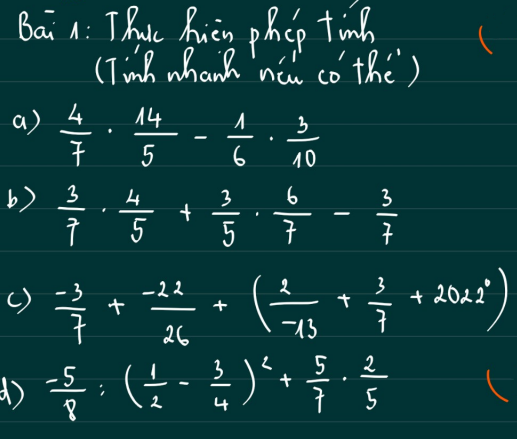 Bài 1: Thực hiện phép tính
(Tính nhanh nếu có thể)
a) 4/7 . 14/5 - 1/6 . 3/10
b) 3/7 . 4/5 + 3/5 . 6/7 - 3/7
c) -3/7 + -22/26 + (2/-13 + 3/7 + 2022⁰)
d) -5/8 : (1/2 - 3/4)² + 5/7 . 2/5